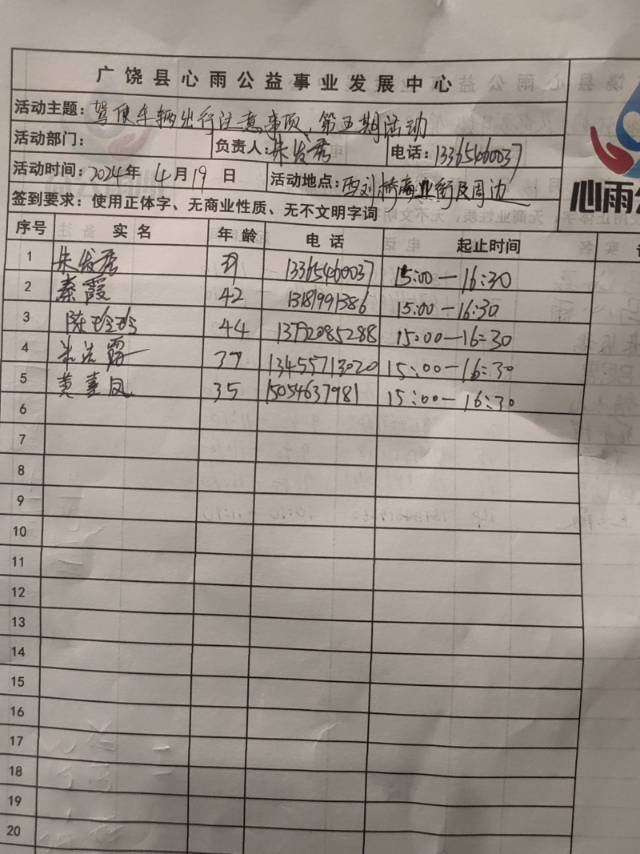 广饶县心雨公益事业发展中心
活动主题：驾驶车辆出行注意事项、第五期活动
活动部门： 负责人：朱发秀 电话：13365460037
活动时间：2024年4月19日 活动地点：西刘桥商业街及周边
心雨公
签到要求：使用正体字、无商业性质、无不文明字词
序号 实名 年龄 电话 起止时间
1 朱发秀 13365460037 15:00—16:30
2 秦霞 42 13181991386 15:00—16:30
3 陈珍珍 44 13792085288 15:00—16:30
4 37 13455713020 15:00—16:30
5 黄喜凤 35 15054637981 15:00—16:30
6
7
8
9
10
11
12
13
14
15
16
17
18
19
20